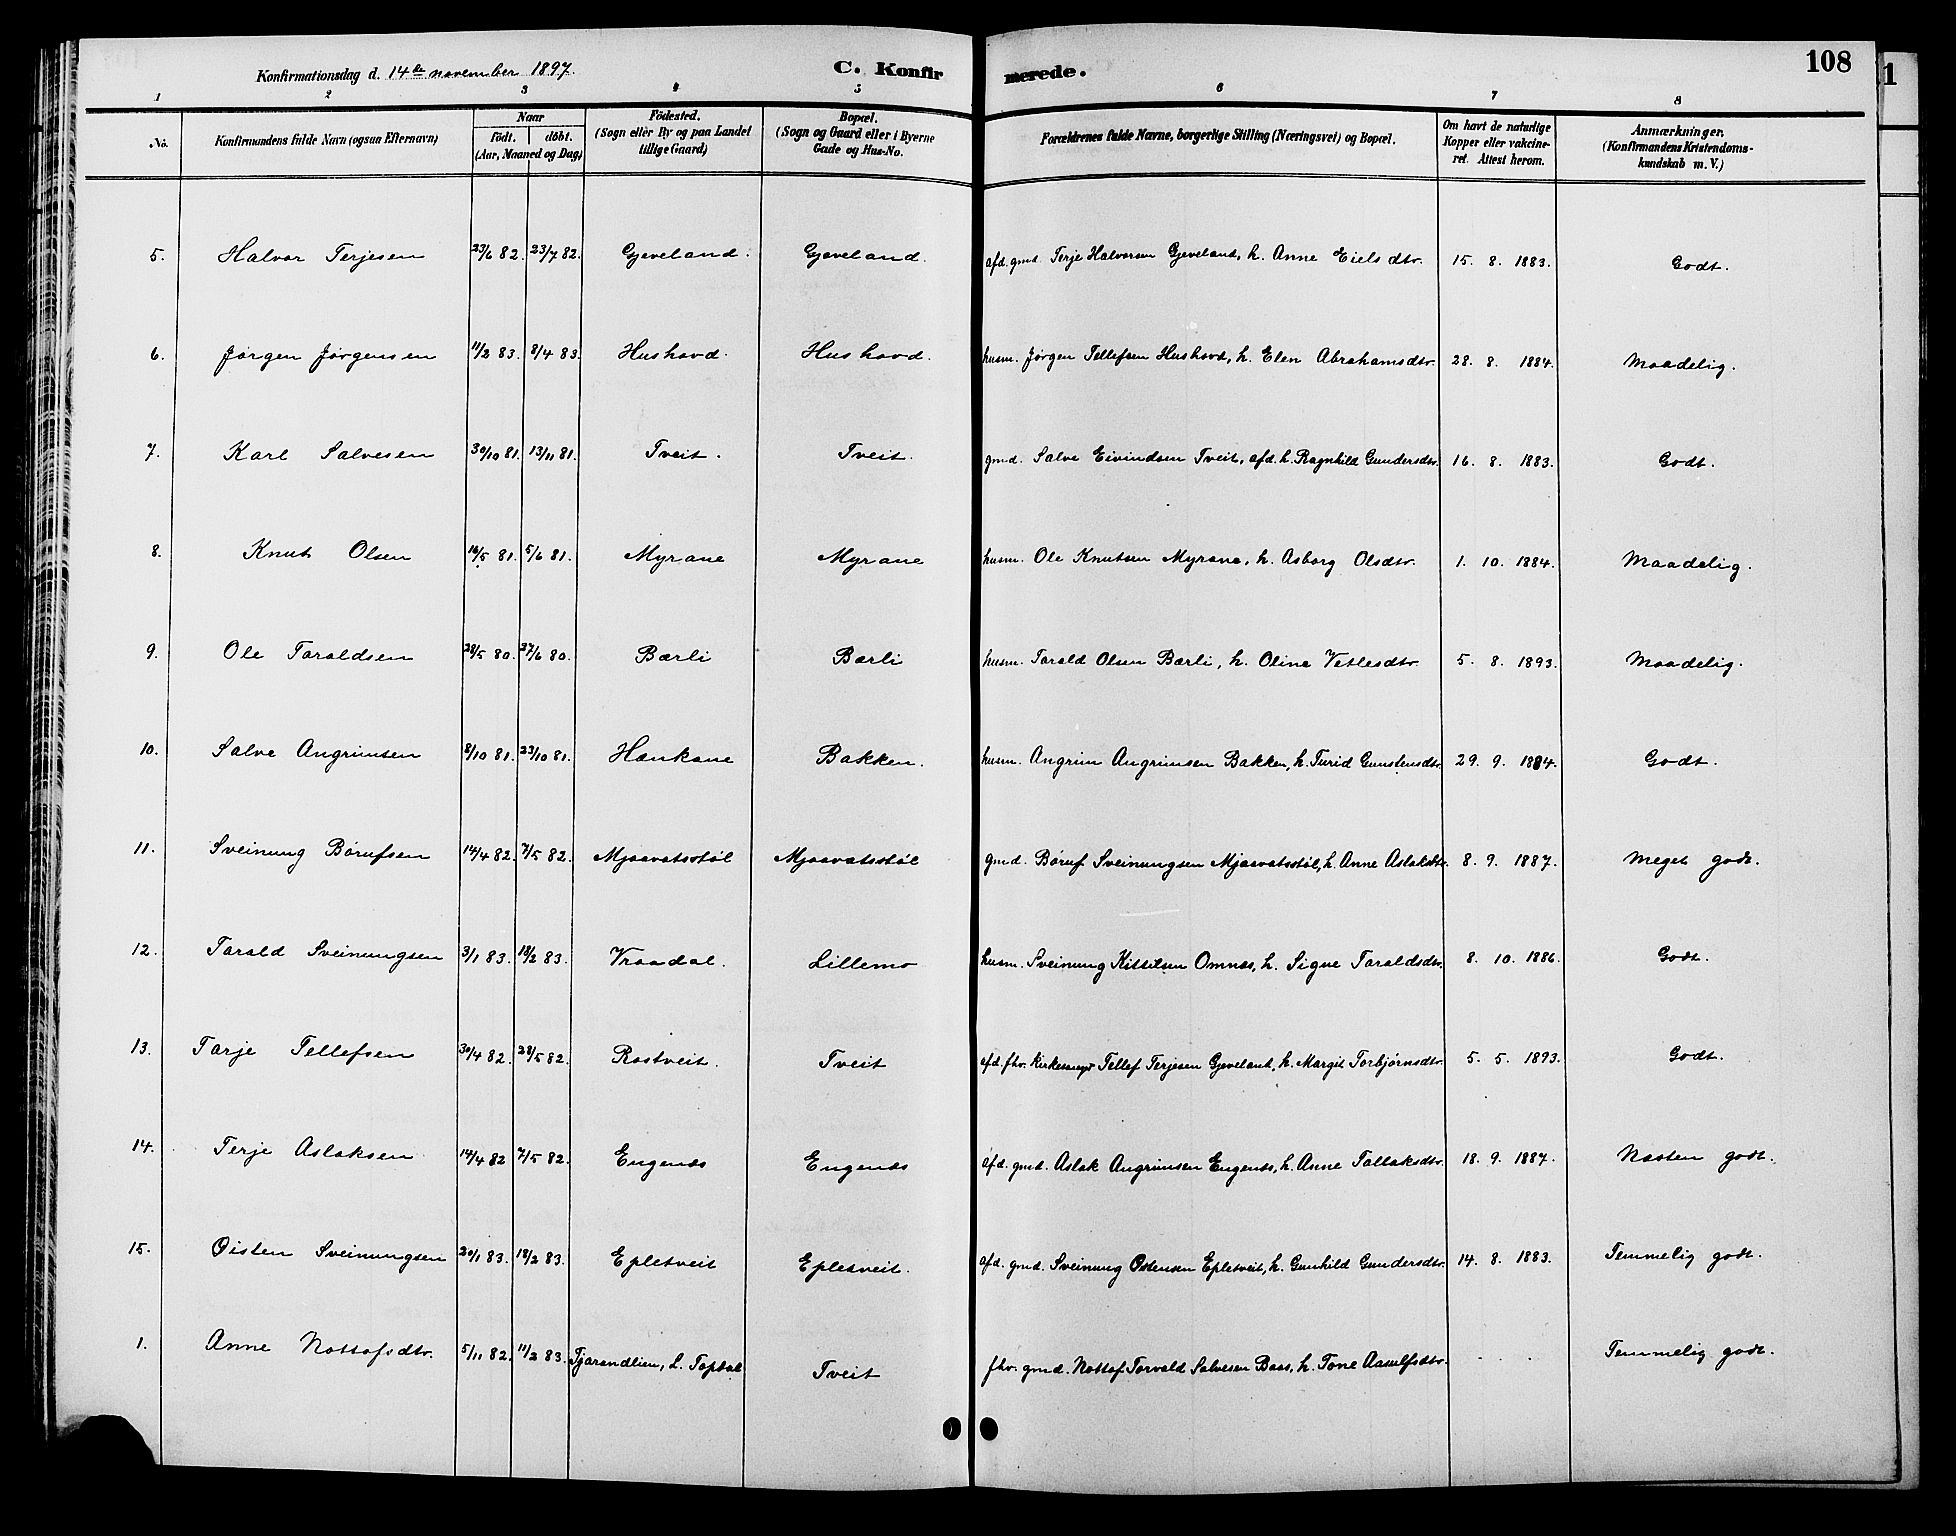 Konfirmationsdag d. 14de november 1897. C. Konfirmerede. 108
1 2 3 4 5 6 7 8
No. Konfirmandens fulde Navn (ogsaa Efternavn) Naar födt. döbt. (Aar, Maaned og Dag) Födested. (Sogn eller By og paa Landet tillige Gaard) Bopæl. (Sogn og Gaard eller i Byerne Gade og Hus-No. Forældrenes fulde Navne, borgerlige Stilling (Næringsvei) og Bopæl. Om havt de naturlige Kopper eller vakcineret. Attest herom. Anmærkninger. (Konfirmandens Kristendomskundskab m. V.)
5. Halvor Terjesen 23/6 82. 23/7 82. Gjeveland. Gjeveland. afd. gmd. Terje Halvorsen Gjeveland, h. Anne Eielsdtr. 15. 8. 1883. Godt.
6. Jørgen Jørgensen 11/2 83. 8/4 83. Hushovd. Hushovd. husm. Jørgen Tellefsen Hushovd, h. Elen Abrahamsdtr. 28. 8. 1884. Maadelig.
7. Karl Salvesen 30/10 81. 13/11 81. Tveit. Tveit. gmd. Salve Eivindsen Tveit, afd. h. Ragnhild Gundersdtr. 16. 8. 1883. Godt.
8. Knut Olsen 16/5 81. 5/6 81. Myrane Myrane husm. Ole Knutsen Myrane, h. Asborg Olsdtr. 1. 10. 1884. Maadelig.
9. Ole Taraldsen 28/5 80. 27/6 80. Bærli Bærli husm. Tarald Olsen Bærli, h. Oline Vetlesdtr. 5. 8. 1893. Maadelig.
10. Salve Angrimsen 8/10 81. 23/10 81. Haukane Bakken. husm. Angrim Angrimsen Bakken, h. Turid Gunstensdtr. 29. 9. 1884. Godt.
11. Sveinung Børufsen 14/4 82. 7/5 82. Mjaavatsstøl Mjaavatsstøl gmd. Børuf Sveinungsen Mjaavatsstøl, h. Anne Aslaksdtr. 8. 9. 1887. Meget godt.
12. Tarald Sveinungsen 3/1 83. 18/2 83. Vraadal. Lillemo husm. Sveinung Kittilsen Omnæs, h. Signe Taraldsdtr. 8. 10. 1886. Godt.
13. Tarje Tellefsen 30/4 82. 28/5 82. Rostveit. Tveit afd. fhv. kirkesanger Tellef Terjesen Gjeveland, h. Margit Torbjørnsdtr. 5. 5. 1893. Godt.
14. Terje Aslaksen 14/4 82 7/5 82. Engenæs Engenæs afd. gmd. Aslak Angrimsen Engenæs, h. Anne Tallaksdtr. 18. 9. 1887. Næsten godt.
15. Øisten Sveinungsen 20/1 83. 18/2 83. Epletveit Epletveit. afd. gmd. Sveinung Østensen Epletveit, h. Gunhild Gundersdtr. 14. 8. 1883. Temmelig godt.
1. Anne Nottofsdtr. 5/11 82. 11/2 83. Tjarandlien, L. Topdal Tveit fhv. gmd. Nottof Torvald Salvesen Baas, h. Tone Aasulfsdtr. Temmelig godt.